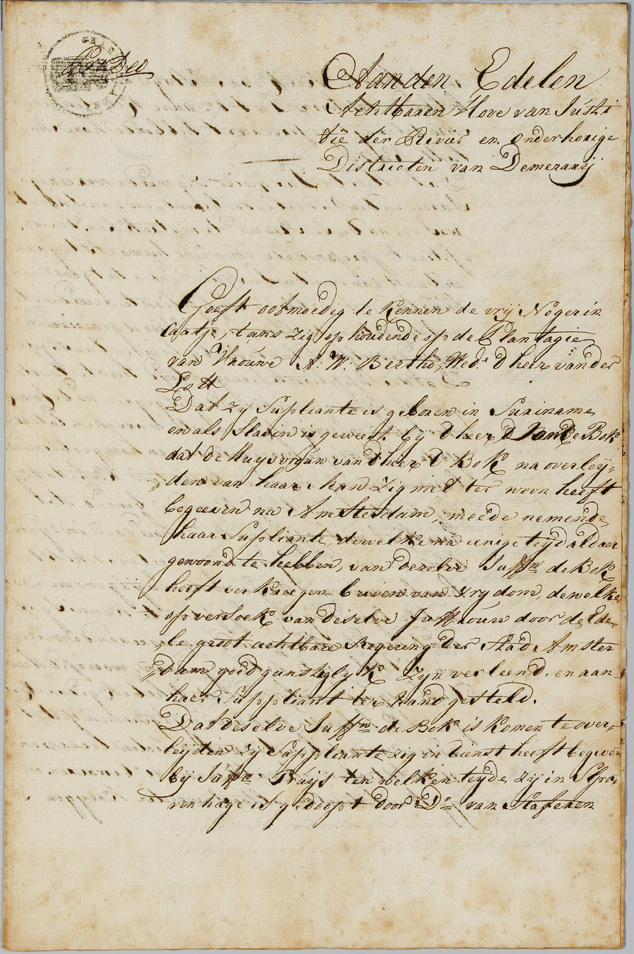 Aan den Edelen
Achtbaaren Hove van Justi
tie der Rivier en onderhorige
Districten van Demerarij
Geeft ootmoedig te kennen de vrij Negerin
Caatje, tans zig ophoudende op de Plantagie
van Vrouwe N. W. Bertho, Wede d'heer van der
Lott
Dat zij Supliante is geboren in Suriname
en als Slavin is geweest bij d'heer D Van De Bok
dat de Huysvrouw van d'heer D Bok na overleij,,
,,den van haar Man zig met ter woon heeft
begeeven na Amsterdam, meede nemende
haar Supliante, dewelke na eenige teyd aldaar
gewoond te hebben, van dezelve Juffw de Bok
heeft verkreegen brieven van vrydom, dewelke
op versoek van deselve Juffrouw door de Ede
le groot achtbare Regering der Stad Amster
,,dam goedgunstiglyk zyn verleend, en aan
haer Suppliant ter hand gesteld.
Dat deselve Juffw de Bok is komen te over,,
leyden zy Suppliante zig in dienst heeft begeven
bij Juffw Truijs ten welken teyde zij in 'Sgra
venhage is gedoopt door Ds van Staferen